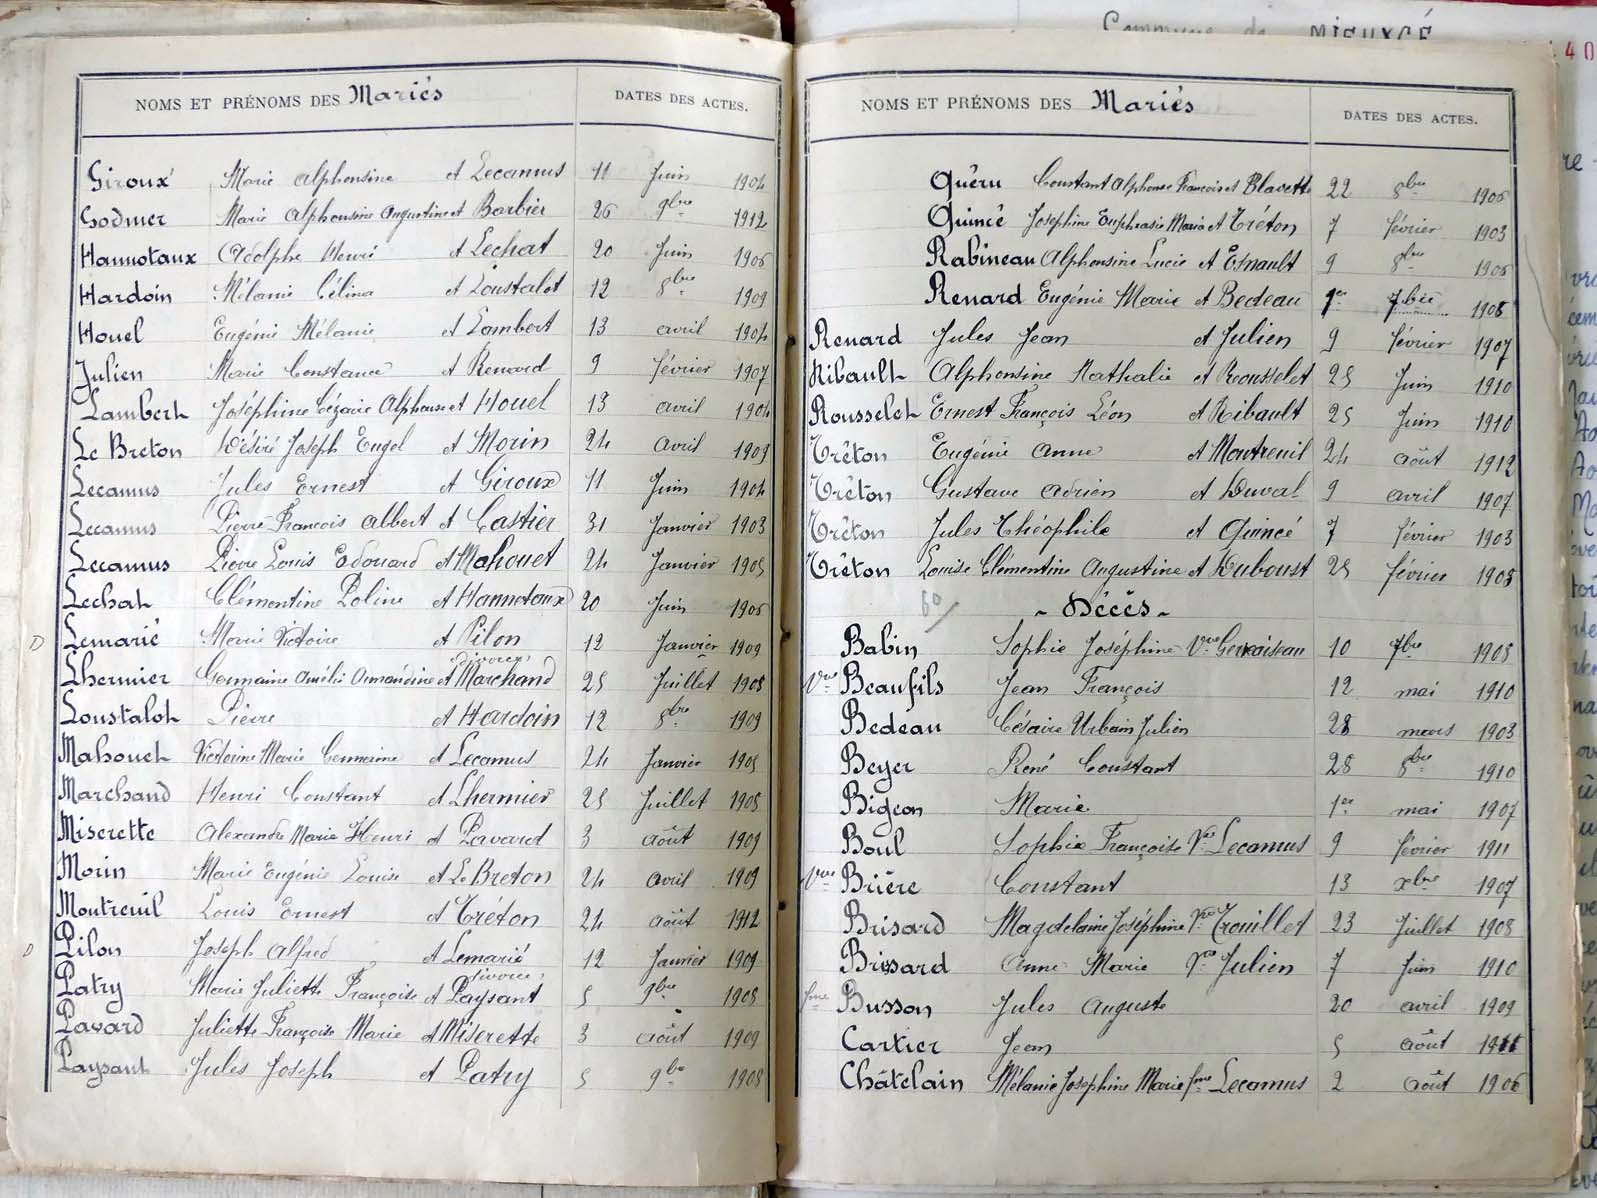 Commune de MIEUXCÉ
40
NOMS ET PRÉNOMS DES Mariés DATES DES ACTES.
Giroux Marie Alphonsine et Lecamus 11 Juin 1904
Godmer Marie Alphonsine Augustine et Barbier 26 9bre 1912
Hannotaux Adolphe Henri et Lechat 20 Juin 1906
Hardoin Mélanie Célina et Loustalot 12 8bre 1909
Houel Eugénie Mélanie et Lambert 13 avril 1904
Julien Marie Constance et Renard 9 février 1907
Lambert Joséphine Légaire Alphonse et Houel 13 avril 1904
Le Breton Désiré Joseph Engel et Morin 24 avril 1909
Lecamus Jules Ernest et Giroux 11 Juin 1904
Lecamus Pierre François Albert et Castier 31 Janvier 1903
Lecamus Pierre Louis Edouard et Mahouet 24 Janvier 1905
Lechat Clémentine Poline et Hannotaux 20 Juin 1906
D Lemarié Marie Victoire et Pilon 12 Janvier 1909
divorcés
Lhermier Germaine Amélie Armandine et Marchand 25 Juillet 1908
Loustalot Pierre et Hardoin 12 8bre 1909
Mahouet Victorine Marie Germaine et Lecamus 24 Janvier 1905
Marchand Henri Constant et Lhermier 25 Juillet 1908
Miserette Alexandre Marie Henri et Pavard 3 août 1909
Morin Marie Eugénie Louise et Le Breton 24 avril 1909
Montreuil Louis Ernest et Tréton 24 août 1912
D Pilon Joseph Alfred et Lemarié 12 Janvier 1909
divorcés
Patry Marie Juliette Françoise et Paysant 5 9bre 1908
Pavard Juliette Françoise Marie et Miserette 3 août 1909
Paysant Jules Joseph et Patry 5 9bre 1908
NOMS ET PRÉNOMS DES Mariés DATES DES ACTES.
Quéru Constant Alphonse François et Blavette 22 8bre 1906
Quincé Joséphine Euphrasie Maria et Tréton 7 février 1903
Rabineau Alphonsine Lucie et Esnault 9 8bre 1906
Renard Eugénie Marie et Bedeau 1er 7bre 1908
Renard Jules Jean et Julien 9 février 1907
Ribault Alphonsine Nathalie et Rousselet 25 Juin 1910
Rousselet Ernest François Léon et Ribault 25 Juin 1910
Tréton Eugénie Anne et Montreuil 24 août 1912
Tréton Gustave Adrien et Duval 9 avril 1907
Tréton Jules Théophile et Quincé 7 février 1903
Tréton Louise Clémentine Augustine et Duboust 25 février 1905
60/ - Décès -
Babin Sophie Joséphine Vve Gervaiseau 10 7bre 1905
Vve Beaufils Jean François 12 mai 1910
Bedeau Césaire Urbain Julien 28 mars 1903
Beyer René Constant 28 8bre 1910
Bigeon Marie 1er mai 1907
Boul Sophie Françoise Vve Lecamus 9 février 1911
Vve Brière Constant 13 xbre 1907
Brisard Magdelaine Joséphine Vve Trouillet 23 Juillet 1908
Brissard Anne Marie Vve Julien 7 Juin 1910
fme Busson Jules Auguste 20 avril 1909
Cartier Jean 5 août 1911
Châtelain Mélanie Josephine Marie fme Lecamus 2 août 1906